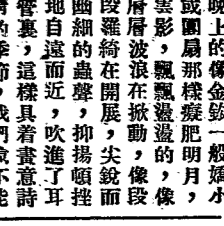 晚上的像金釵一般嬌小
或團扇那樣癡肥明月，
雲影，飄飄盪盪的，像
層層波浪在掀動，像段
段羅綺在開展，尖銳而
幽細的蟲聲，抑揚頓挫
地自遠而近，吹進了耳
管裏，這樣具着畫意詩